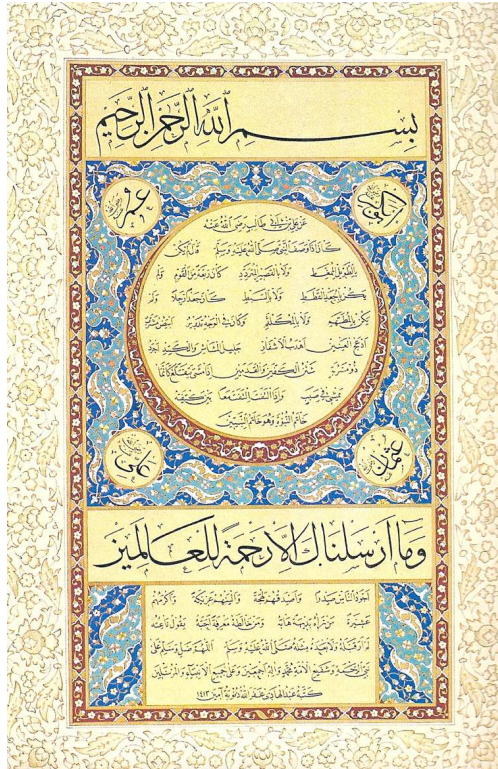 بسم الله الرحمن الرحيم
أبو بكر
عمر
عن علي بن أبي طالب رضي الله عنه
كان إذا وصف النبي صلى الله عليه وسلم قال لم يكن
بالطويل الممغط ولا بالقصير المتردد كان ربعة من القوم ولم
يكن بالجعد القطط ولا بالسبط كان جعدا رجلا ولم
يكن بالمطهم ولا بالمكلثم وكان في الوجه تدوير أبيض مشرب
أدعج العينين أهدب الأشفار جليل المشاش والكتد أجرد
ذو مسربة شثن الكفين والقدمين إذا مشى تقلع كأنما
يمشي في صبب وإذا التفت التفت معا بين كتفيه
خاتم النبوة وهو خاتم النبيين
عثمان
علي
وما أرسلناك إلا رحمة للعالمين
أجود الناس صدرا وأصدقهم لهجة وألينهم عريكة وأكرمهم
عشيرة من رآه بديهة هابه ومن خالطه معرفة أحبه يقول ناعته
لم أر قبله ولا بعده مثله صلى الله عليه وسلم اللهم صل وسلم على
نبي الرحمة وشفيع الأمة محمد وآله أجمعين وعلى جميع الأنبياء والمرسلين
كتبه عبد الهادي غفر الله ذنوبه آمين ١٤١٣